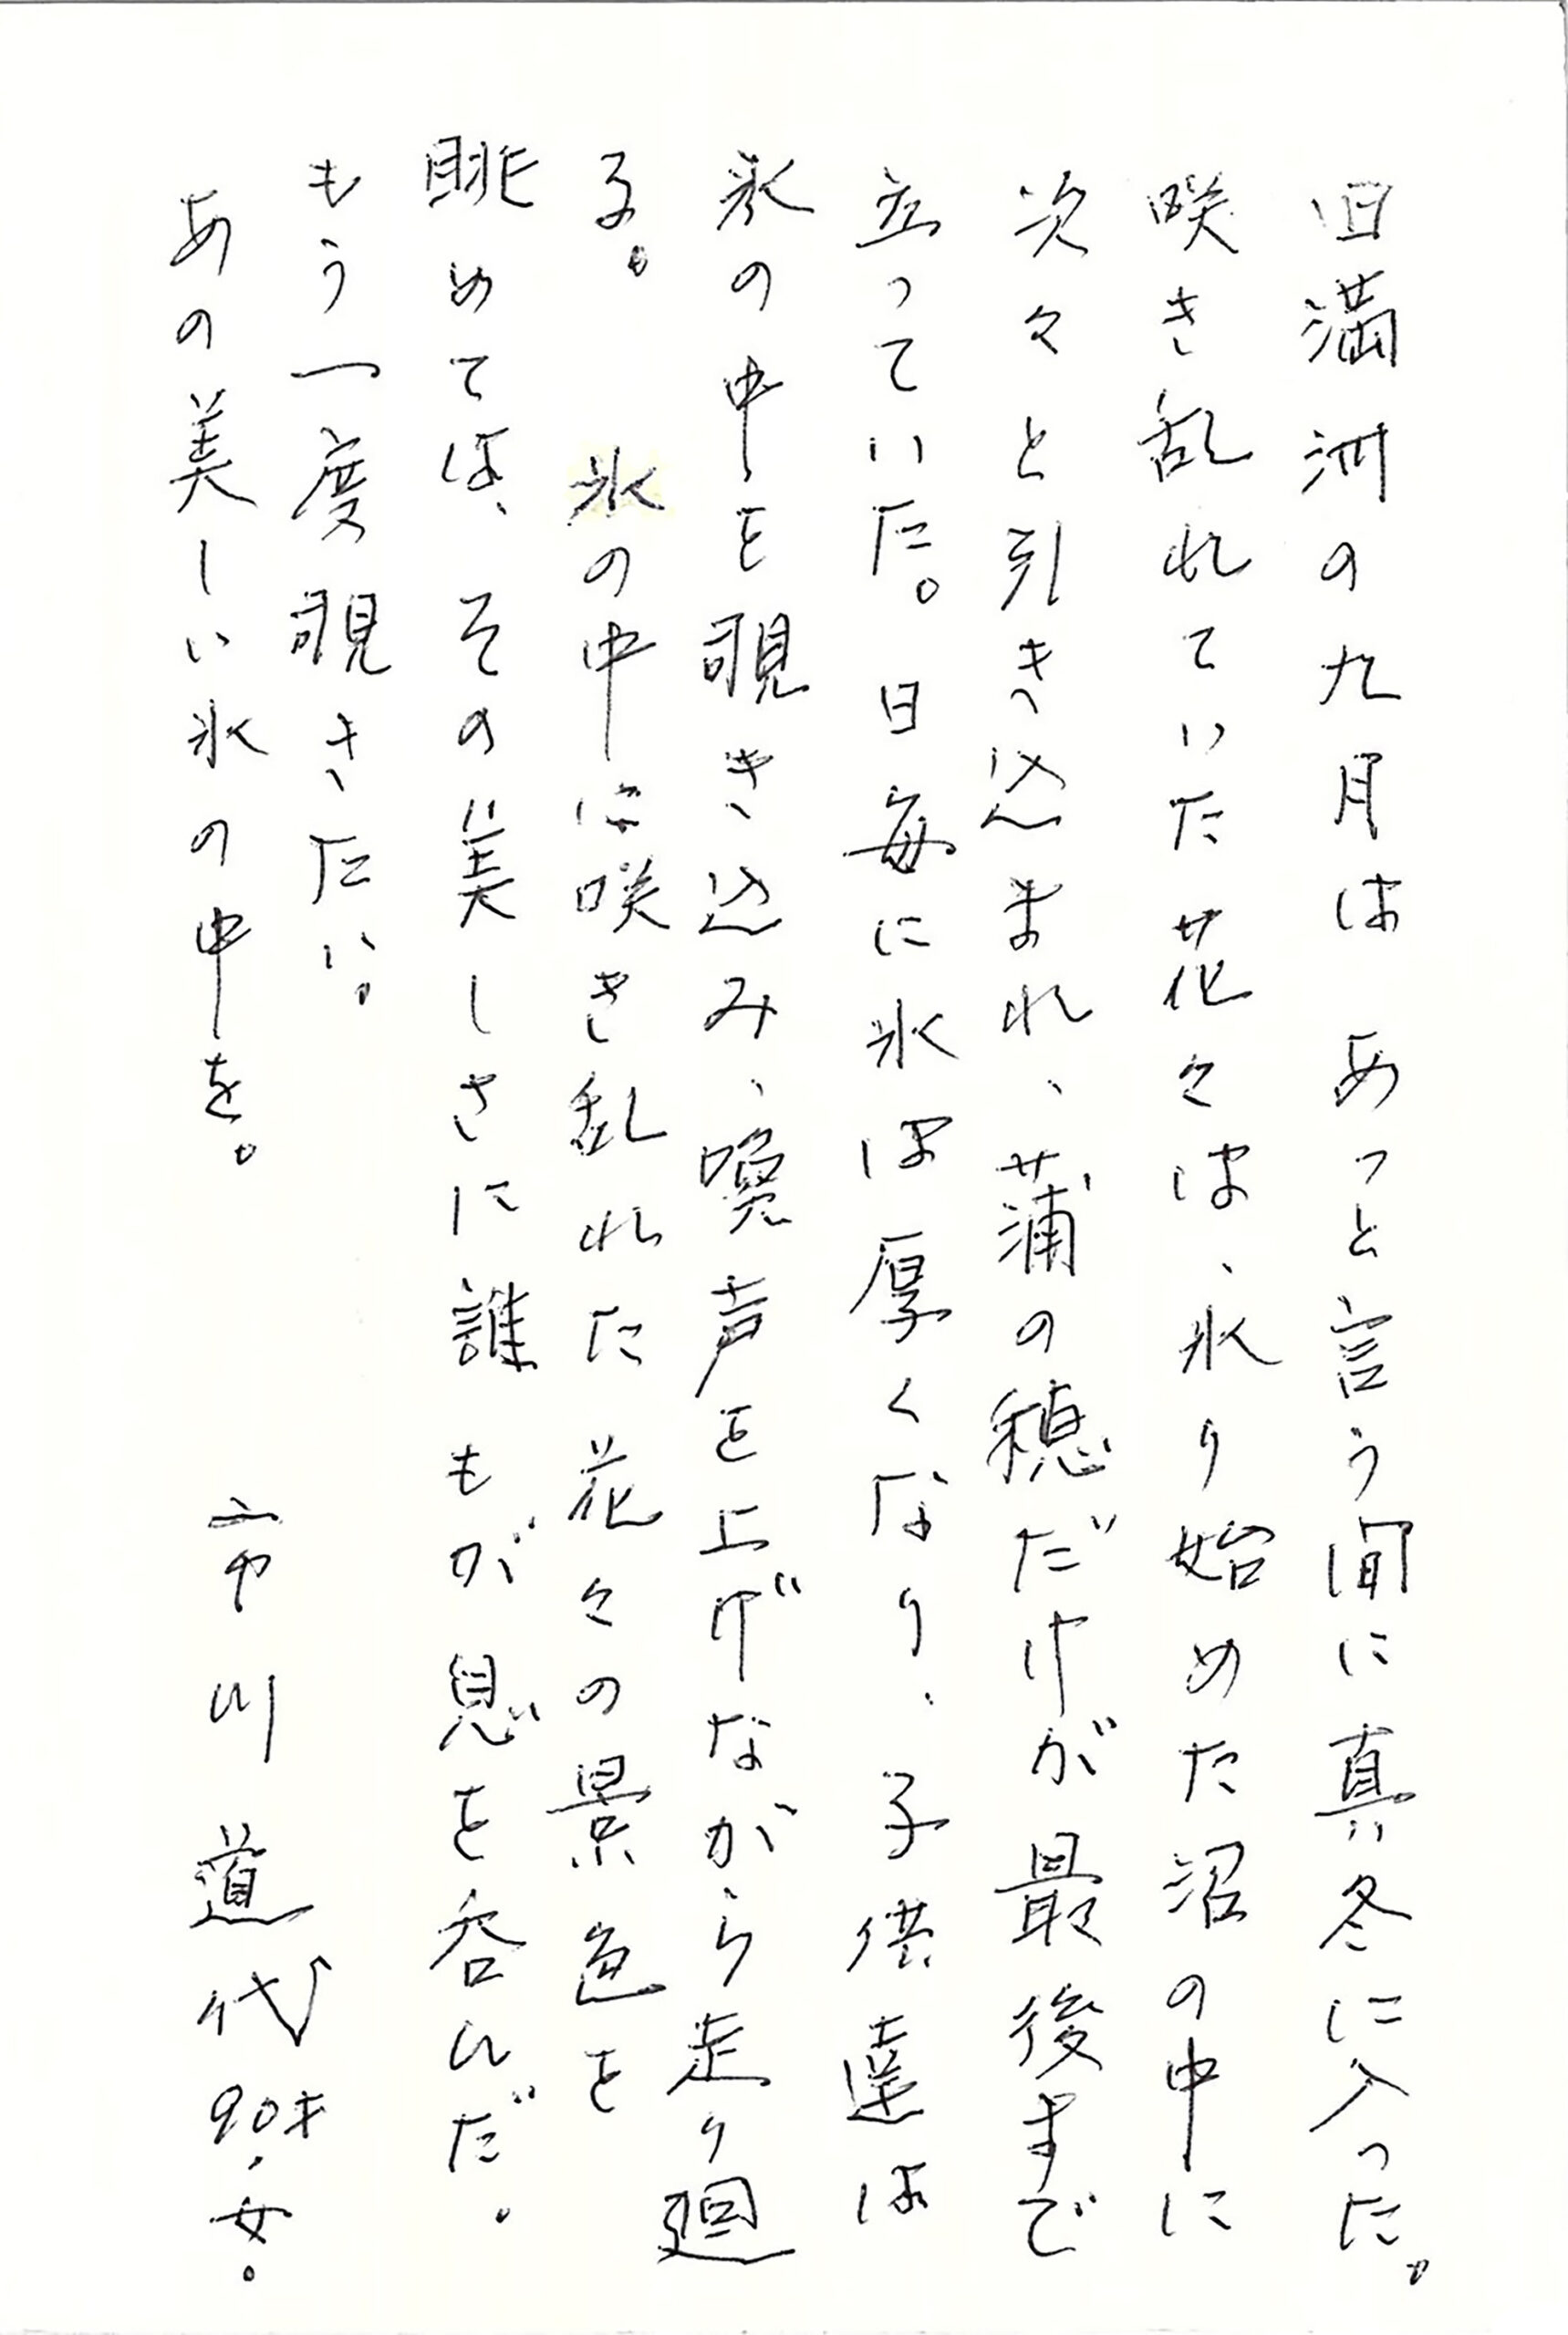 旧満洲の九月は あっと言う間に真冬に入った。
咲き乱れていた花々は、氷り始めた沼の中に
次々と引き込まれ、蒲の穂だけが最後まで
立っていた。日毎に氷は厚くなり、子供達は
氷の中を覗き込み、喚声を上げながら走り廻
る。 氷の中に咲き乱れた花々の景色を
眺めては、その美しさに誰もが息を呑んだ。
もう一度覗きたい。
あの美しい氷の中を。
市川道代 90才、女。